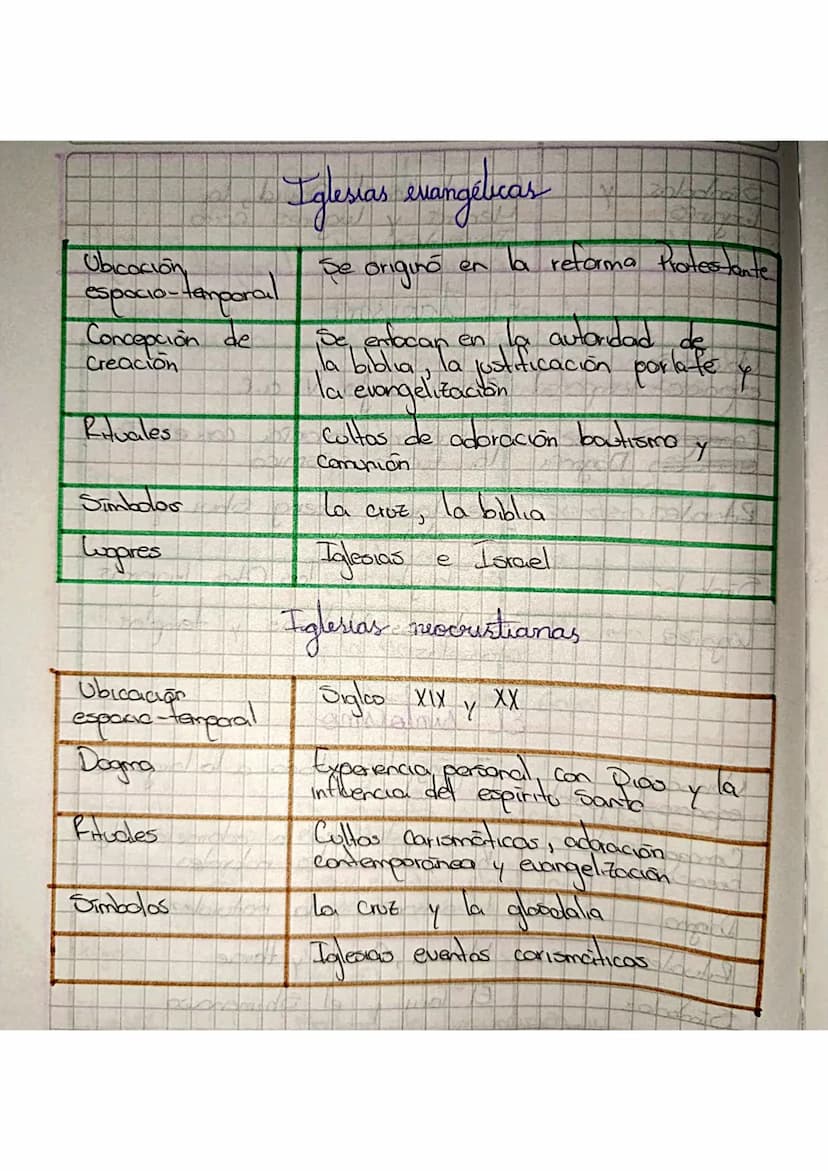 Iglesias evangélicas
Ubicación
espacio-temporal
Se originó en la reforma Protestante
Concepción de
creación
Se enfocan en la autoridad de
la biblia, la justificación por la fe y
la evangelización
Rituales
Cultos de adoración bautismo y
comunión
Símbolos
La cruz, la biblia
Lugares
Iglesias e Israel
Iglesias neocristianas
Ubicación
espacio-temporal
Siglco XIX y XX
Dogma
Experiencia personal con Dios y la
influencia del espiritu Santo
Rituales
Cultos carismáticos, adoración
contemporánea y evangelización
Símbolos
La cruz y la glosolalia
Iglesias eventos carismáticos